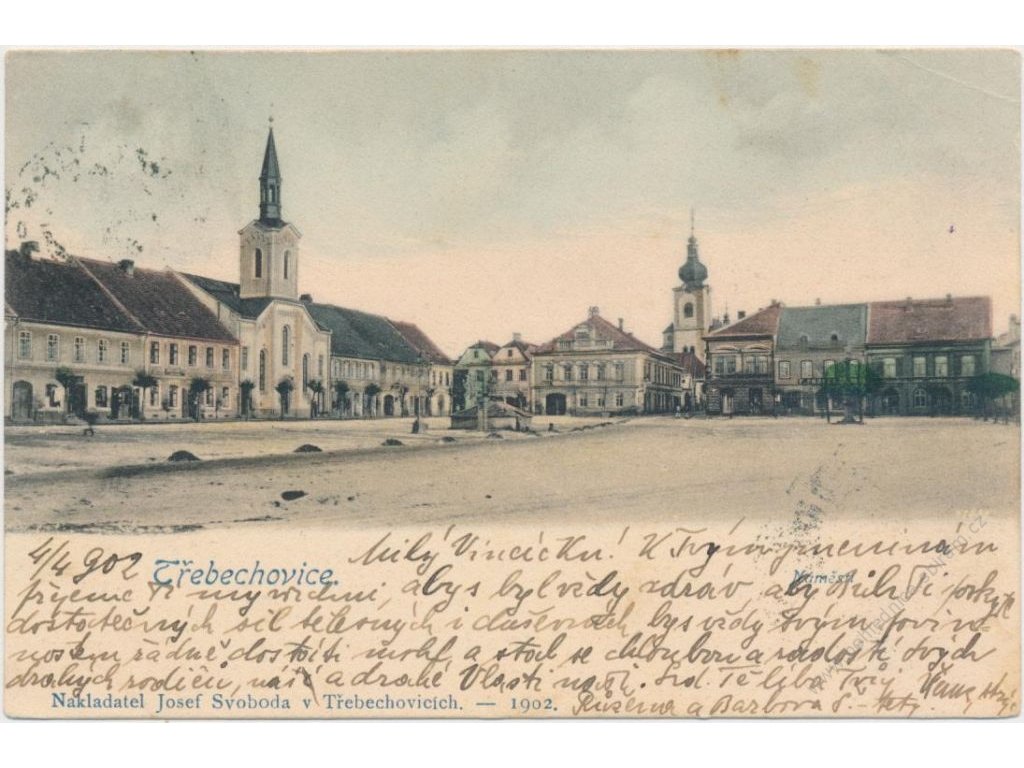 4/4 902 Milý Vincíčku! K Tvým jmeninám
Třebechovice.
Náměstí
přejeme Ti my všichni, abys byl vždy zdráv, aby
dostatečných sil tělesných i duševních, bys vždy svým povin-
nostem řádně dostáti mohl a stal se chloubou a radostí svých
drahých rodičů, náš a drahé Vlasti naší. Srd. Tě líbá Tvůj
Růžena a Barbora
Nakladatel Josef Svoboda v Třebechovicích. — 1902.